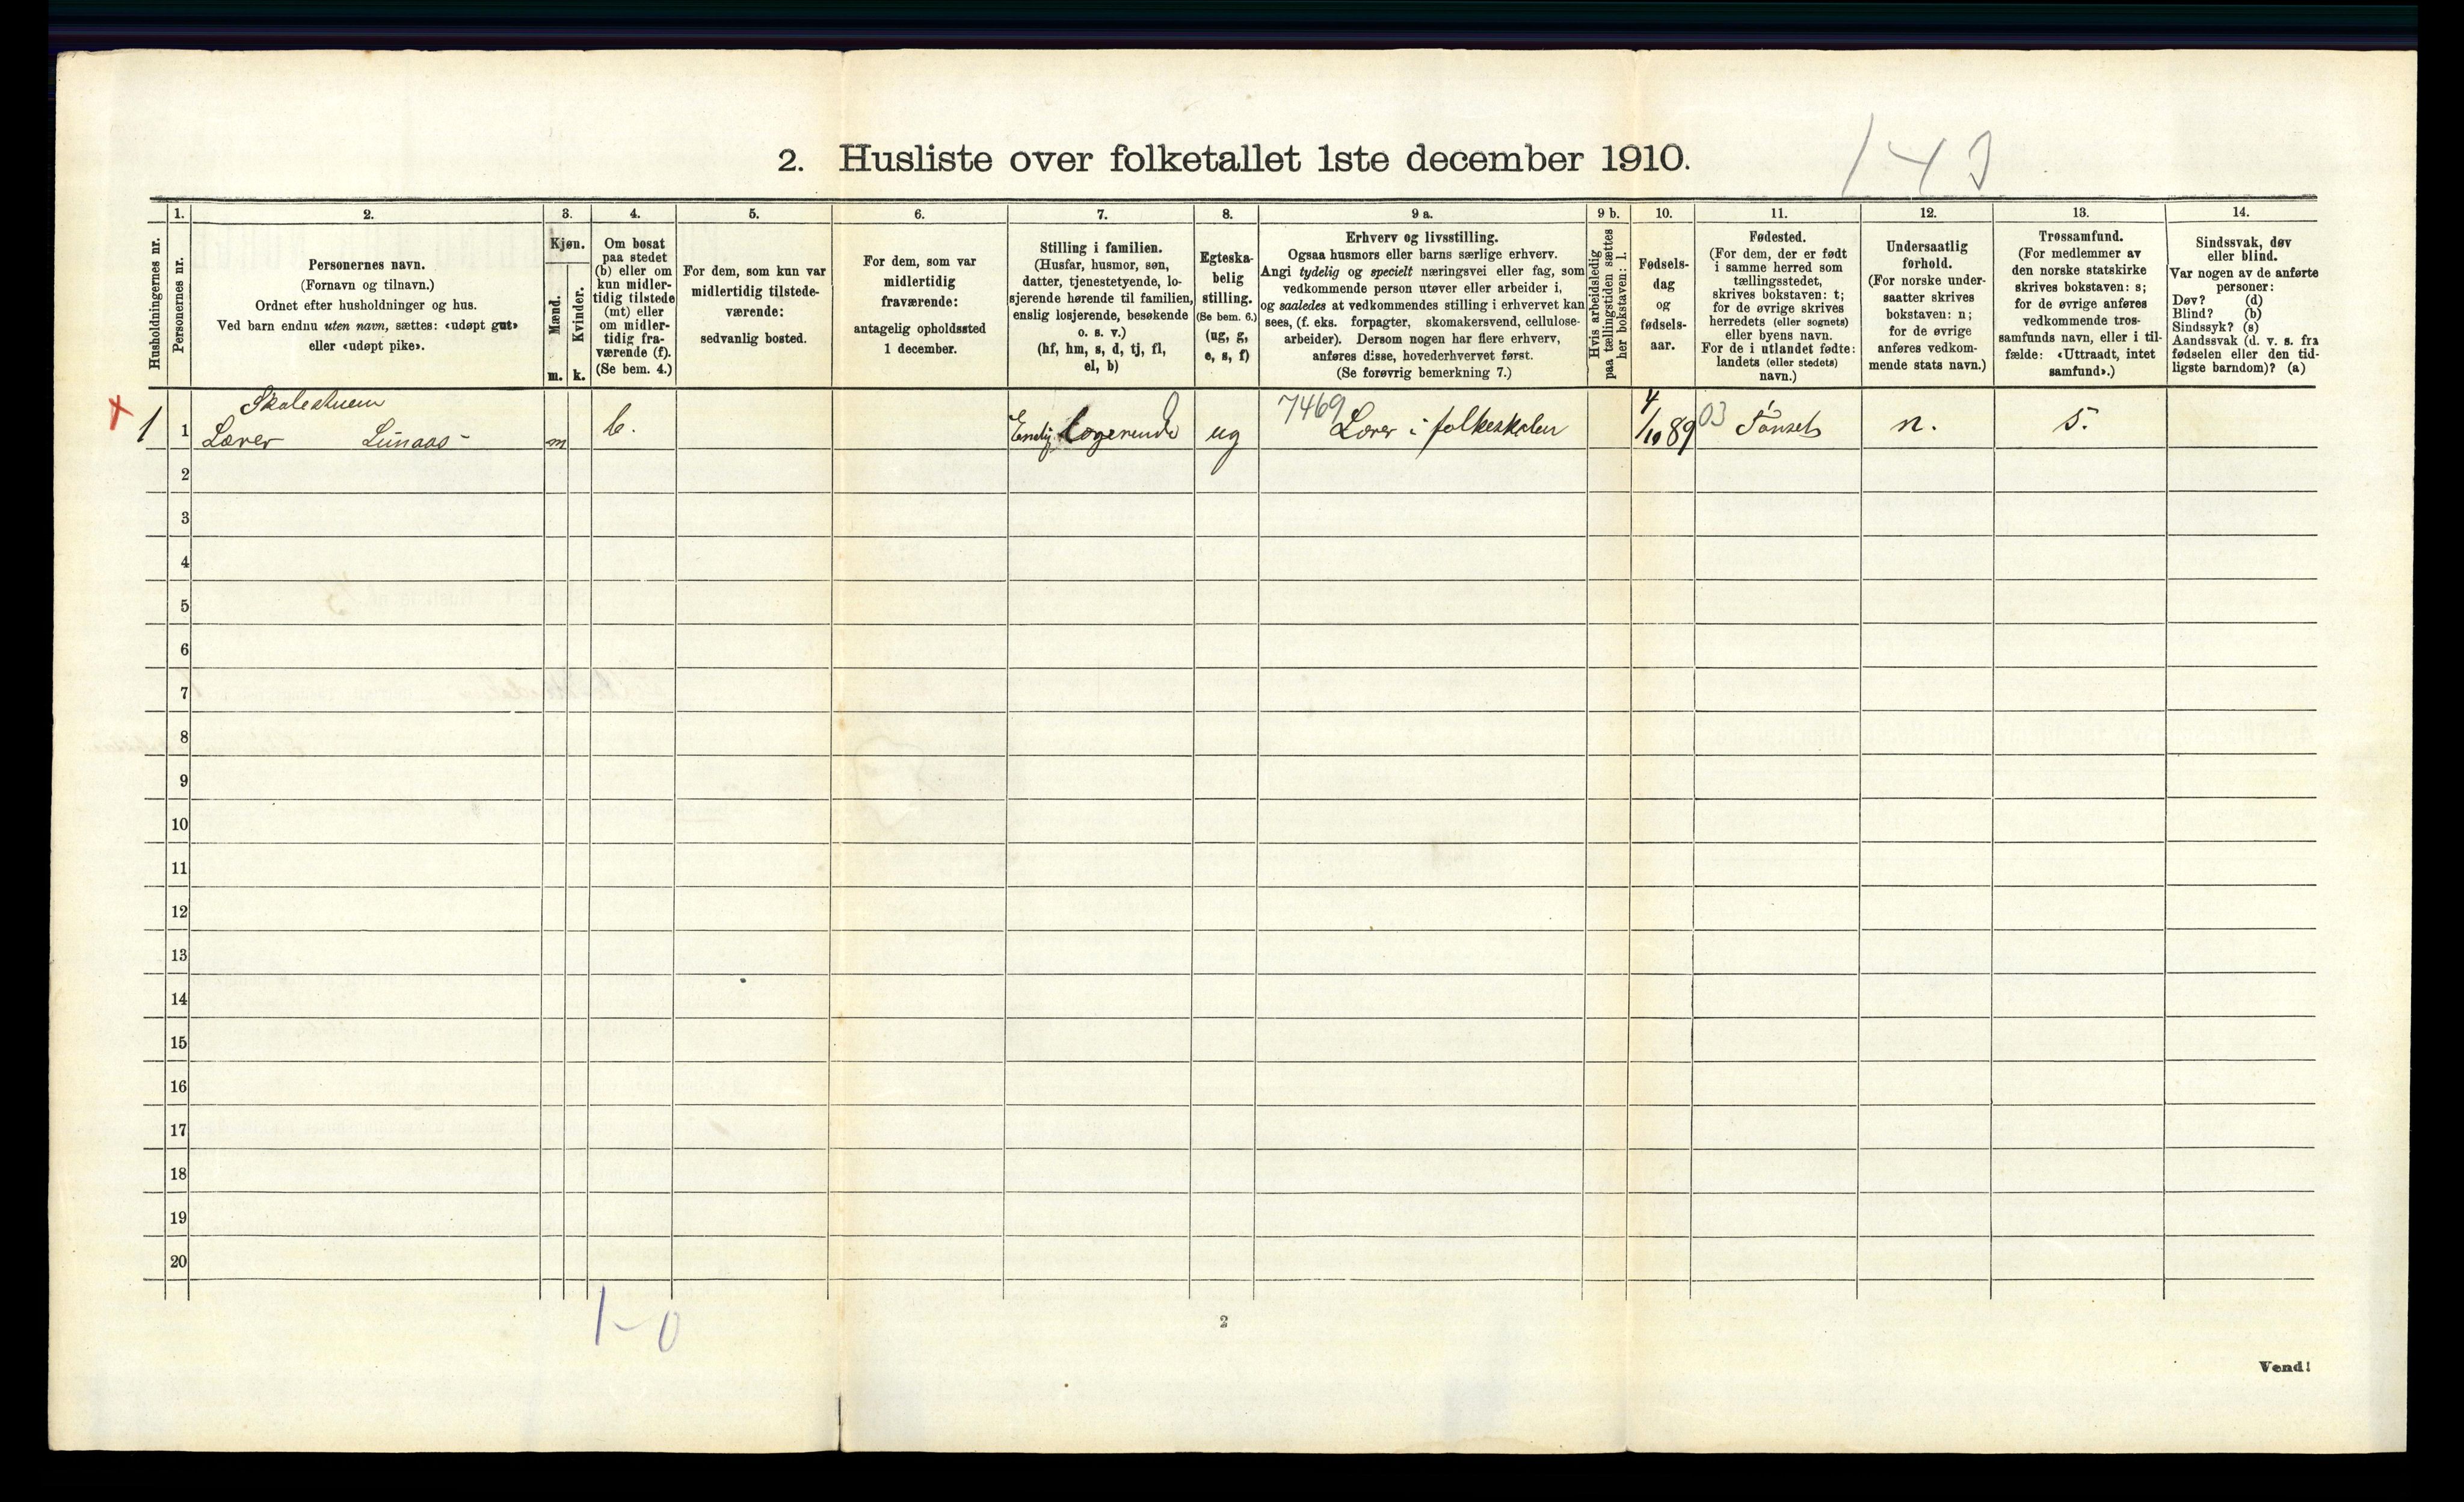 2. Husliste over folketallet 1ste december 1910.
Husholdningernes nr.
1.
Personernes nr.
2.
Personernes navn.
(Fornavn og tilnavn.)
Ordnet efter husholdninger og hus.
Ved barn endnu uten navn, sættes: «udøpt gut»
eller «udøpt pike».
3.
Kjøn.
Mænd.
m.
Kvinder.
k.
4.
Om bosat
paa stedet
(b) eller om
kun midler-
tidig tilstede
(mt) eller
om midler-
tidig fra-
værende (f).
(Se bem. 4.)
5.
For dem, som kun var
midlertidig tilstede-
værende:
sedvanlig bosted.
6.
For dem, som var
midlertidig
fraværende:
antagelig opholdssted
1 december.
7.
Stilling i familien.
(Husfar, husmor, søn,
datter, tjenestetyende, lo-
sjerende hørende til familien,
enslig losjerende, besøkende
o. s. v.)
(hf, hm, s, d, tj, fl,
el, b)
8.
Egteska-
belig
stilling.
(Se bem. 6.)
(ug, g,
e, s, f)
9 a.
Erhverv og livsstilling.
Ogsaa husmors eller barns særlige erhverv.
Angi tydelig og specielt næringsvei eller fag, som
vedkommende person utøver eller arbeider i,
og saaledes at vedkommendes stilling i erhvervet kan
sees, (f. eks. forpagter, skomakersvend, cellulose-
arbeider). Dersom nogen har flere erhverv,
anføres disse, hovederhvervet først.
(Se forøvrig bemerkning 7.)
9 b.
Hvis arbeidsledig
paa tællingstiden sættes
her bokstaven: l.
10.
Fødsels-
dag
og
fødsels-
aar.
11.
Fødested.
(For dem, der er født
i samme herred som
tællingsstedet,
skrives bokstaven: t;
for de øvrige skrives
herredets (eller sognets)
eller byens navn.
For de i utlandet fødte:
landets (eller stedets)
navn.)
12.
Undersaatlig
forhold.
(For norske under-
saatter skrives
bokstaven: n;
for de øvrige
anføres vedkom-
mende stats navn.)
13.
Trossamfund.
(For medlemmer av
den norske statskirke
skrives bokstaven: s;
for de øvrige anføres
vedkommende tros-
samfunds navn, eller i til-
fælde: «Uttraadt, intet
samfund».)
14.
Sindssvak, døv
eller blind.
Var nogen av de anførte
personer:
Døv? (d)
Blind? (b)
Sindssyk? (s)
Aandssvak (d. v. s. fra
fødselen eller den tid-
ligste barndom)? (a)
Skolestuen
1 1 Lærer Lunaas - m b. Enslig logerende ug 7469 Lærer i folkeskolen 4/10 89 03 Tönset n. s.
2
3
4
5
6
7
8
9
10
11
12
13
14
15
16
17
18
19
20
1-0
2
Vend!